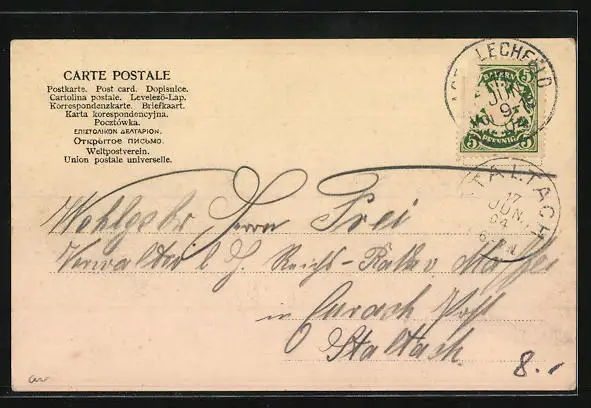 CARTE POSTALE
Postkarte. Post card. Dopisnice.
Cartolina postale. Levelező-Lap.
Korrespondenzkarte. Briefkaart.
Karta korespondencyjna.
Pocztówka.
ΕΠΙΣΤΟΛΙΚΟΝ ΔΕΛΤΑΡΙΟΝ.
Открытое письмо.
Weltpostverein.
Union postale universelle.
LECHFELD
BAYERN
5 5
PFENNIG
STALTACH
17
JUN.
04
Wohlgebr Herrn Frei
Verwalter d. H. Reichs-Rathes Maffei
in Curach Post
Staltach.
8.-